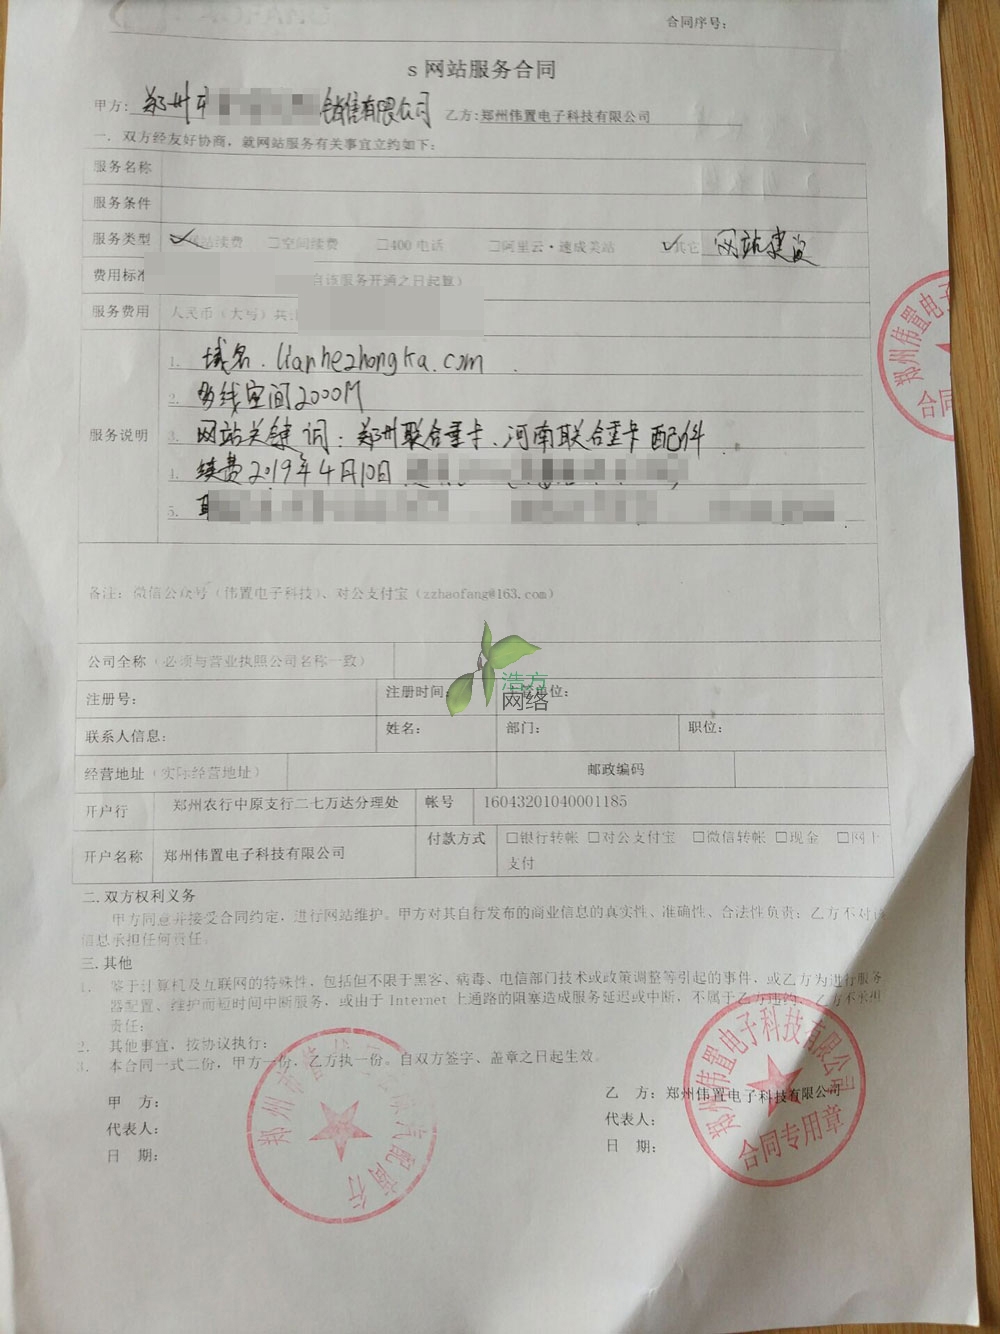 合同序号：
s 网站服务合同
甲方：郑州市 销售有限公司 乙方：郑州伟置电子科技有限公司
一．双方经友好协商，就网站服务有关事宜立约如下：
服务名称
服务条件
服务类型 ✓ 站续费 □空间续费 □400 电话 □阿里云·速成美站 ✓其它 网站建设
费用标准 自连服务开通之日起算）
服务费用 人民币（大写）共计
服务说明
1. 域名．lianhezhongka.com
2. 多线空间2000M
3. 网站关键词：郑州联合重卡、河南联合重卡配件
4. 续费2019年4月10日
5.
备注：微信公众号（伟置电子科技）、对公支付宝（zzhaofang@163.com）
公司全称（必须与营业执照公司名称一致）
注册号： 注册时间： 单位：
浩方
网络
联系人信息： 姓名： 部门： 职位：
经营地址（实际经营地址） 邮政编码
开户行 郑州农行中原支行二七万达分理处 帐号 16043201040001185
开户名称 郑州伟置电子科技有限公司 付款方式 □银行转帐 □对公支付宝 □微信转帐 □现金 □网上
支付
二．双方权利义务
甲方同意并接受合同约定，进行网站维护。甲方对其自行发布的商业信息的真实性、准确性、合法性负责；乙方不对该
信息承担任何责任。
三．其他
1. 鉴于计算机及互联网的特殊性，包括但不限于黑客、病毒、电信部门技术或政策调整等引起的事件，或乙方为进行服务
器配置、维护而短时间中断服务，或由于 Internet 上通路的阻塞造成服务延迟或中断，不属于乙方违约，乙方不承担
责任；
2. 其他事宜，按协议执行；
3. 本合同一式二份，甲方一份，乙方执一份。自双方签字、盖章之日起生效。
甲 方： 乙 方：郑州伟置电子科技有限公司
代表人： 代表人：
日 期： 日 期：
郑州伟置电子科技有限公司
合同专用章
郑州伟置电子
合同
郑州市 汽配商行